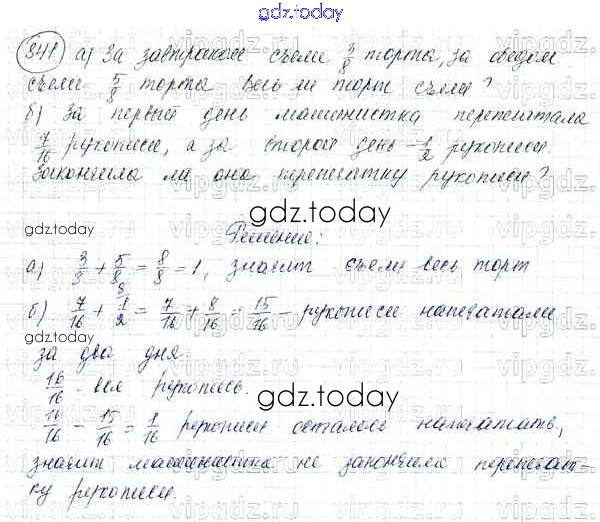 gdz.today
841 а) За завтраком съели 3/8 торта, за обедом
съели 5/8 торта Весь ли торт съели?
б) За первый день машинистка перепечатала
7/16 рукописи, а за второй день - 1/2 рукописи.
Закончила ли она перепечатку рукописи?
gdz.today
gdz.today
Решение:
а) 3/8 + 5/8 = 8/8 = 1, значит съели весь торт
б) 7/16 + 1/2 = 7/16 + 8/16 = 15/16 - рукописи напечатали
gdz.today
за два дня.
16/16 - вся рукопись.
gdz.today
16/16 - 15/16 = 1/16 рукописи осталось напечатать,
gdz.today
значит машинистка не закончила перепечат-
ку рукописи.